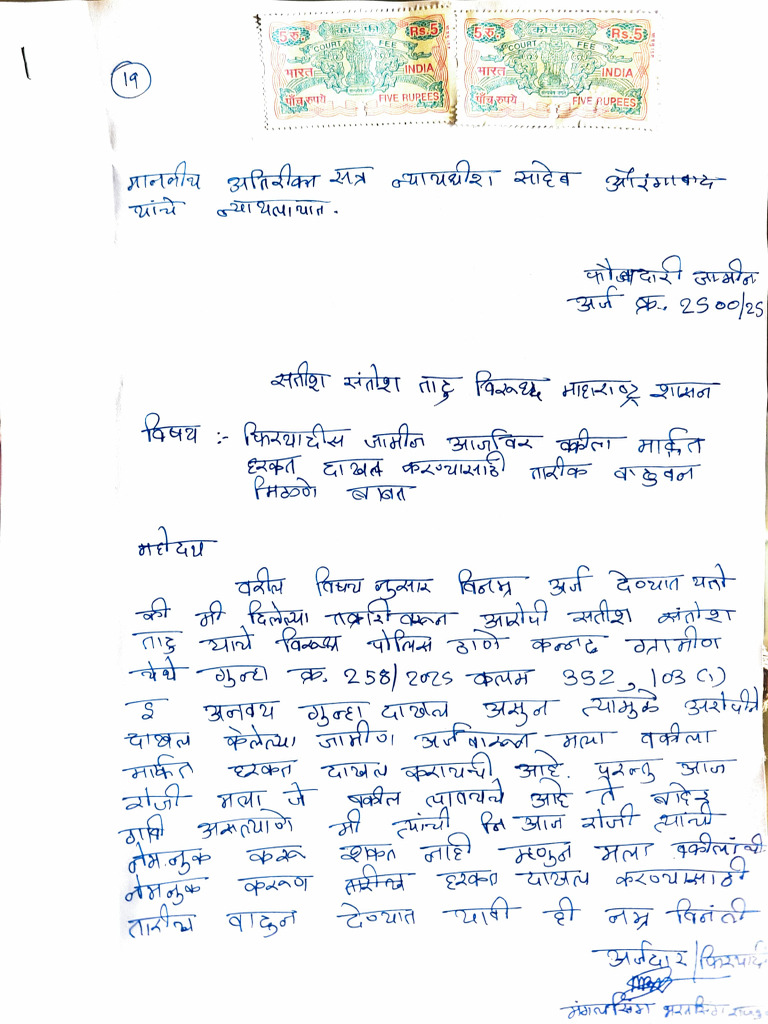 1
19
5 रु. कोर्ट फी Rs.5
COURT FEE
भारत INDIA
पाँच रुपये FIVE RUPEES
5 रु. कोर्ट फी Rs.5
COURT FEE
भारत INDIA
पाँच रुपये FIVE RUPEES
माननीय अतिरीक्त सत्र न्यायधीश साहेब औरंगाबाद
यांचे न्यायलायात.
फौजदारी जामीन
अर्ज क्र. 2500/25
सतीश संतोष ताटु विरूध्द माहाराष्ट्र शासन
विषय :- फिरयादीस जामीन आर्जावर वकीला मार्फत
हरकत दाखल करण्यासाठी तारीक वाढुवन
मिळणे बाबत
महोदय
वरील विषय नुसार विनम्र अर्ज देण्यात येतो
की मी दिलेल्या तक्रारी वरून आरोपी सतीश संतोश
ताटु याचे विरूध्द पोलिस ठाणे कन्नड ग्रामीण
येथे गुन्हा क्र. 258/2025 कलम 352, 103 (1)
इ अनवय गुन्हा दाखल असुन त्यामुळे अरोपीने
दाखल केलेल्या जामीण अर्ज मला वकीला
मार्फत हरकत दाखल करायची आहे. परन्तु आज
रोजी मला जे वकील लावायचे आहे ते बाहेर
गावी असल्याणे मी त्यांची नि आज रोजी त्यांची
नेमनुक करू शकत नाही म्हणुन मला वकीलांची
नेमनुक करूण तारीख हरकत दाखल करण्यासाठी
तारीख वाढुन देण्यात यावी ही नम्र विनंती
अर्जदार/फिरयादी
मंगलसिंग भरतसिंग